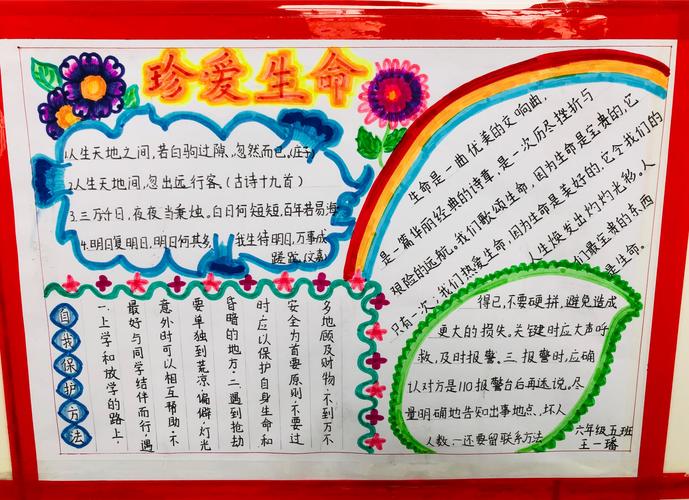 珍爱生命
1.人生天地之间,若白驹过隙,忽然而已.(庄子
2.人生天地间,忽出远行客.(古诗十九首)
3.三万千日,夜夜当秉烛。白日何短短,百年苦易海
4.明日复明日,明日何其多 我生待明日,万事成
蹉跎.(文嘉)
生命是一曲优美的交响曲,
是一篇华丽经典的诗章,是一次历尽挫折与
艰险的远航。我们歌颂生命,因为生命是宝贵的,它
只有一次;我们热爱生命,因为生命是美好的,它令我们的
人生焕发出灼灼光彩。人
们最宝贵的东西
是生命。
自我保护方法
一.上学和放学的路上,
最好与同学结伴而行,遇
意外时可以相互帮助.不
要单独到荒凉.偏僻.灯光
昏暗的地方.二.遇到抢劫
时,应以保护自身生命和
安全为首要原则,不要过
多地顾及财物.不到万不
得已,不要硬拼,避免造成
更大的损失。关键时应大声呼
救,及时报警。三.报警时,应确
认对方是110报警台后再述说。尽
量明确地告知出事地点、坏人
人数.还要留联系方法
六年级五班
王一璠